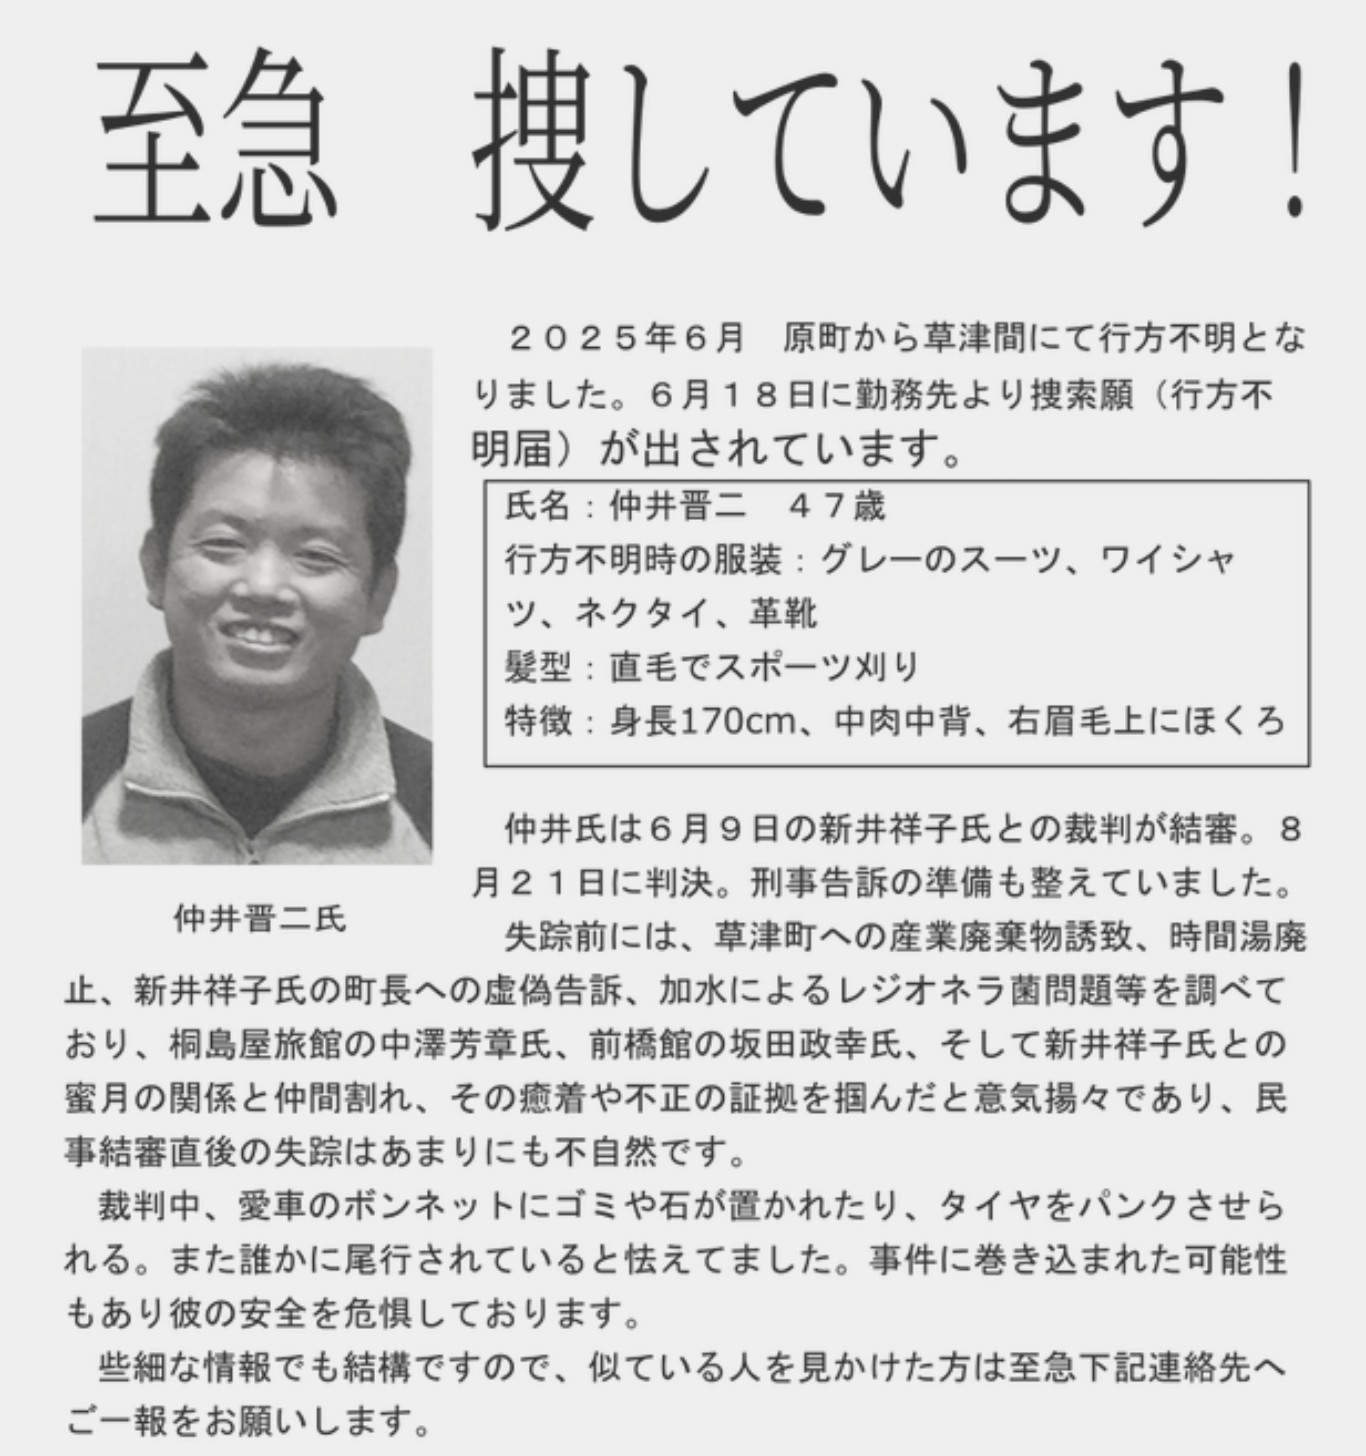 至急　捜しています！
２０２５年６月　原町から草津間にて行方不明とな
りました。６月１８日に勤務先より捜索願（行方不
明届）が出されています。
氏名：仲井晋二　４７歳
行方不明時の服装：グレーのスーツ、ワイシャ
ツ、ネクタイ、革靴
髪型：直毛でスポーツ刈り
特徴：身長170cm、中肉中背、右眉毛上にほくろ
仲井氏は６月９日の新井祥子氏との裁判が結審。８
月２１日に判決。刑事告訴の準備も整えていました。
仲井晋二氏
失踪前には、草津町への産業廃棄物誘致、時間湯廃
止、新井祥子氏の町長への虚偽告訴、加水によるレジオネラ菌問題等を調べて
おり、桐島屋旅館の中澤芳章氏、前橋館の坂田政幸氏、そして新井祥子氏との
蜜月の関係と仲間割れ、その癒着や不正の証拠を掴んだと意気揚々であり、民
事結審直後の失踪はあまりにも不自然です。
裁判中、愛車のボンネットにゴミや石が置かれたり、タイヤをパンクさせら
れる。また誰かに尾行されていると怯えてました。事件に巻き込まれた可能性
もあり彼の安全を危惧しております。
些細な情報でも結構ですので、似ている人を見かけた方は至急下記連絡先へ
ご一報をお願いします。